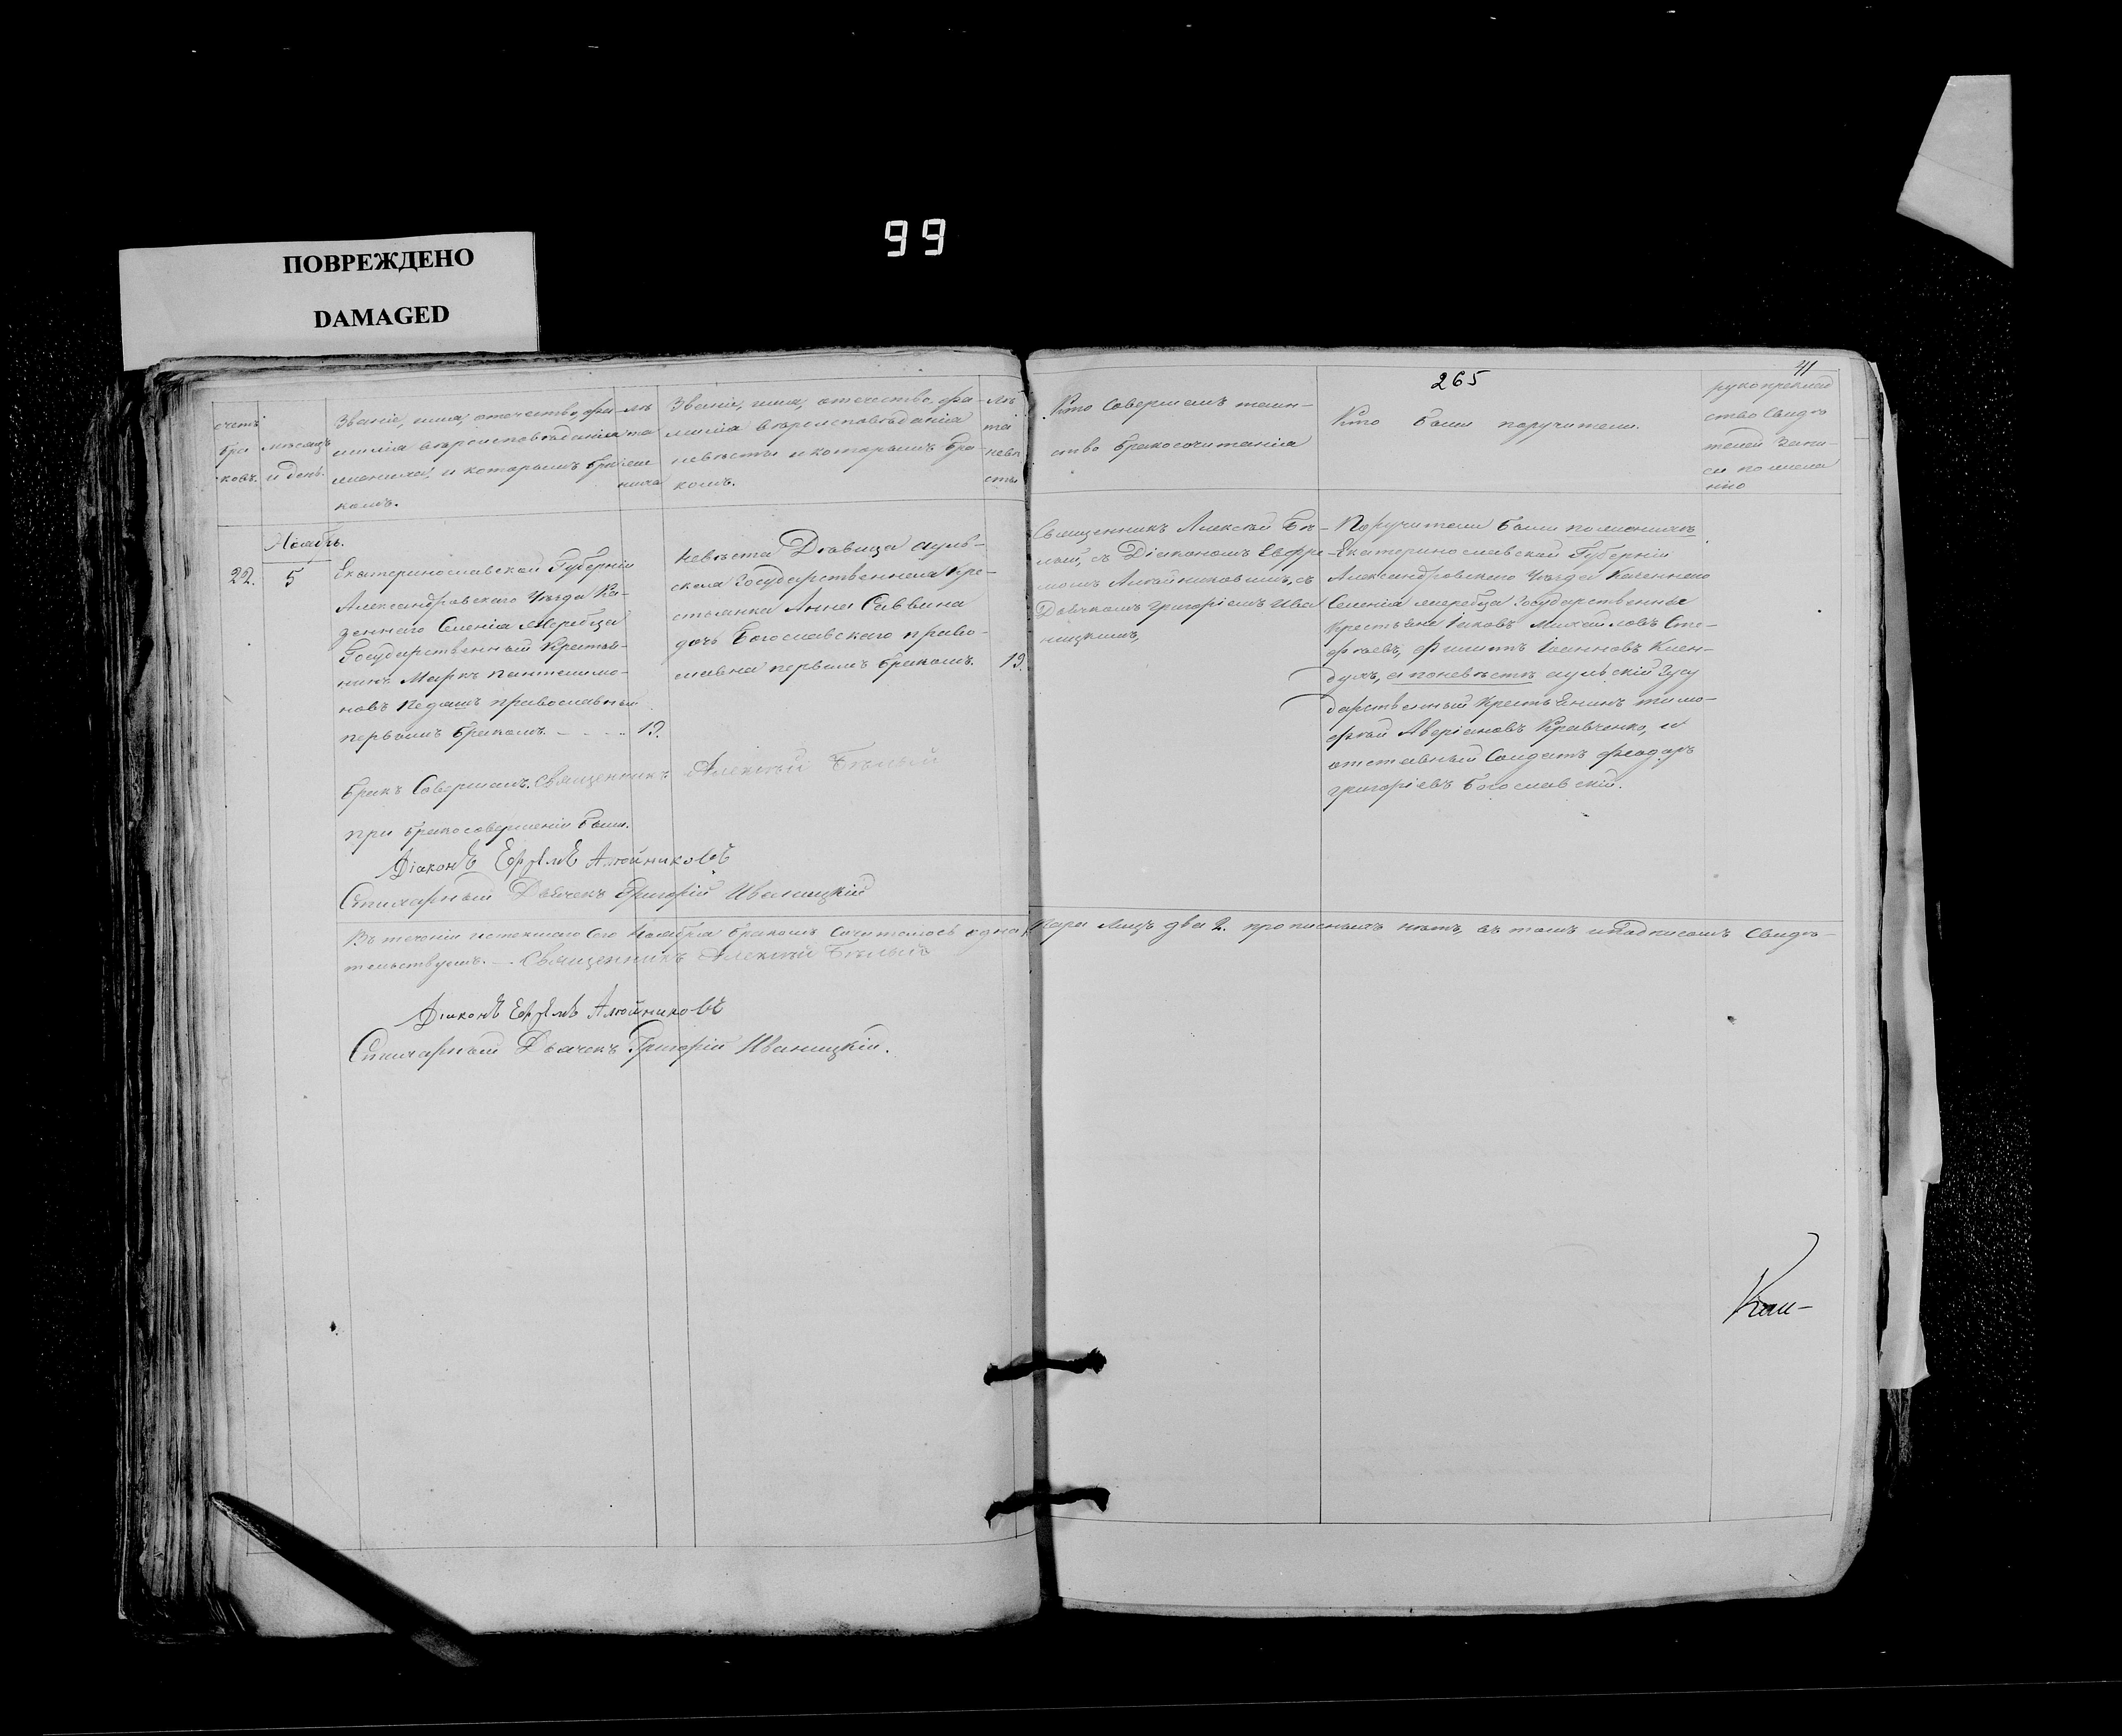 99
ПОВРЕЖДЕНО
DAMAGED
265
41
счетъ
бра
ковъ.
мѣсяцъ
и день.
Званіе, имя, отечество, фа-
милія вѣроисповѣданія
жениха, и которымъ бра
комъ.
лѣ
та
жени
хиха
Званіе, имя, отечество, фа-
милія вѣроисповѣданія
невѣсты и которымъ бра-
комъ.
лѣ
та
невѣ
сты
Кто Совершалъ таин-
ство бракосочитанія
Кто были поручители.
рукоприклад
ство Свидѣ
телей запи-
си по жела
нію
Ноябрь.
22.
5
Екатеринославской Губерніи
Александровскаго Уѣзда Ка-
зеннаго Селенія Жеребца
Государственный Крестья-
нинъ Маркъ Пантелимо-
новъ православный
первымъ бракомъ. - - - - 19.
невѣста Дѣвица ауль-
скала Государственная Кре-
стьянка Анна Саввина
дочь Богославскаго право-
славна первымъ бракомъ. 19.
Священникъ Алексѣй Бѣ-
лый, съ Діакономъ Евфре
момъ Алтайниковымъ, съ
Дьячкомъ Григоріемъ Ива
ницкимъ,
Поручители были по женихѣ
Екатеринославской Губерніи
Александровскаго Уѣзда Казеннаго
Селенія жеребца Государственные
Крестьяне Іаковъ Михайловъ Сте-
фаевъ, Филиппъ Іоанновъ
а по невѣстѣ аульскій Госу
дарственный Крестьянинъ тимо-
фѣй Аверіановъ Кравченко, и
отставный Солдатъ Феодоръ
григоріевъ Богославскій.
бракъ Совершалъ. Священникъ Алексѣй Бѣлый
при бракосовершеніи были.
Діаконъ Ефремъ Алтайниковъ
Стихарный Дьячекъ Григорій Иваницкій
Въ теченіи истекшаго Сего Ноября бракомъ Сочиталось одна пара лицъ два 2. прописныхъ нѣтъ, въ томъ и Подписомъ Свидѣ-
тельствуемъ. - Священникъ Алексѣй Бѣлый
Діаконъ Ефремъ Алтайниковъ
Стихарный Дьячекъ Григорій Иваницкій.